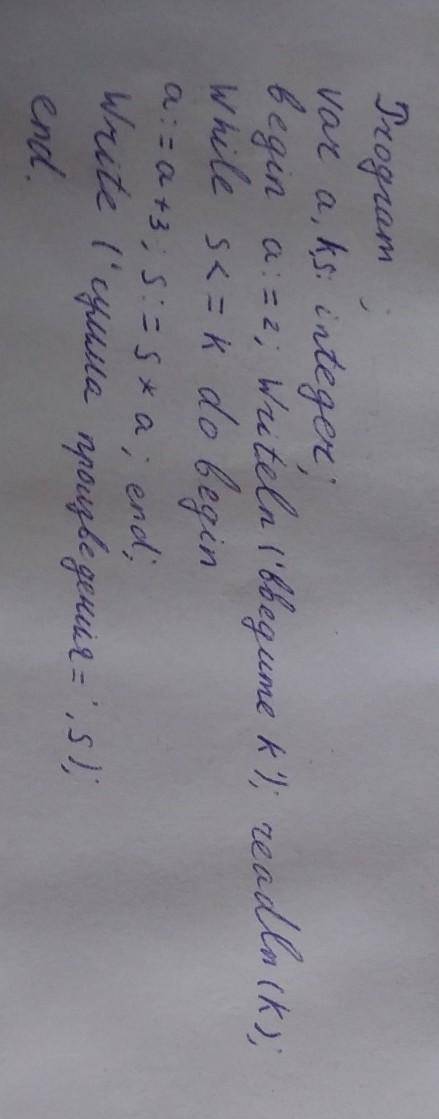 Program ;
var a, k, s: integer;
begin a:=2; Writeln ('введите k'); readln(k);
While s<=k do begin
a:=a+3; s:=s*a; end;
Write ('сумма произведения=', s);
end.